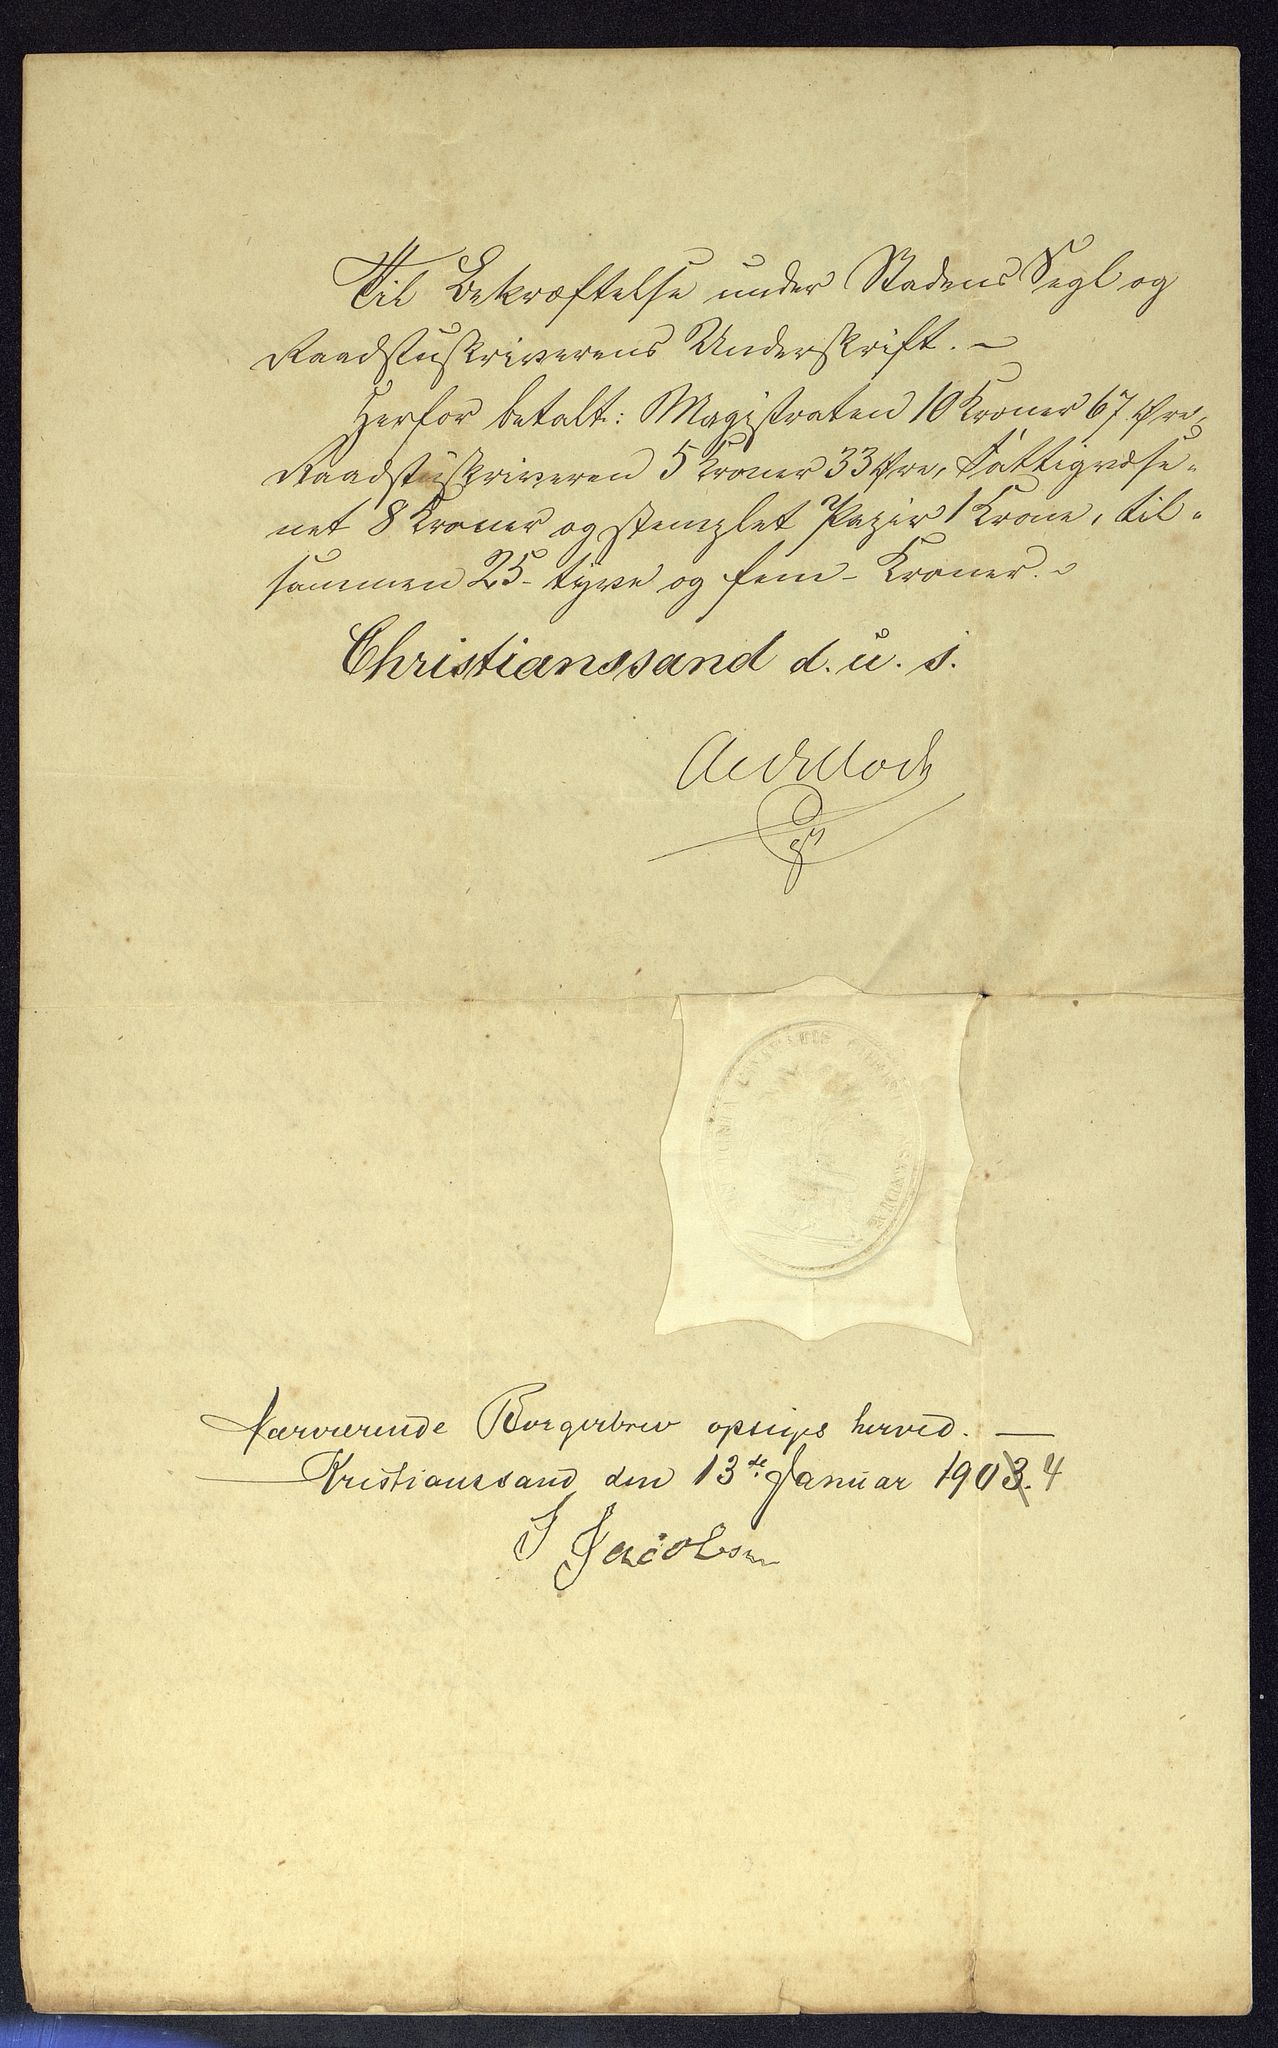 Til Bekræftelse under Stadens Segl og
Raadstuskriverens Underskrift. –
Herfor betalt: Magistraten 10 Kroner 67 Øre,
Raadstuskriveren 5 Kroner 33 Øre, Fattigvæse-
net 8 Kroner og stemplet Papir 1 Krone, til-
sammen 25 - tyve og fem - Kroner. –
Christianssand d. u. s.
Nærværende Borgerbrev opsiges herved. —
Kristianssand den 13de Januar 1903. 4
J Jacobsen